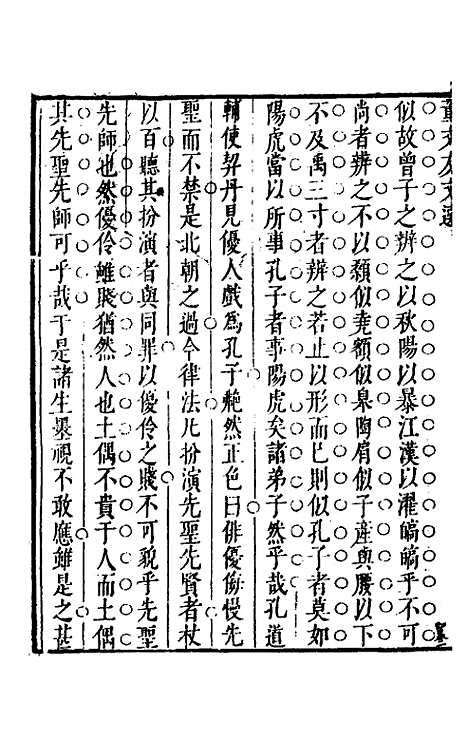 董文友文選
似故曾子之辨之以秋陽以暴江漢以濯皜皜乎不可
尚者辨之不以顙似堯額似臯陶肩似子產與腰以下
不及禹三寸者辨之若止以形而已則似孔子者莫如
陽虎當以所事孔子者事陽虎矣諸弟子然乎哉孔道
輔使契丹見優人戲爲孔子艴然正色曰俳優侮慢先
聖而不禁是北朝之過今律法凡扮演先聖先賢者杖
以百聽其扮演者與同罪以優伶之賤不可貌乎先聖
先師也然優伶雖賤猶然人也土偶不貴于人而土偶
其先聖先師可乎哉于是諸生羣視不敢應雖是之甚